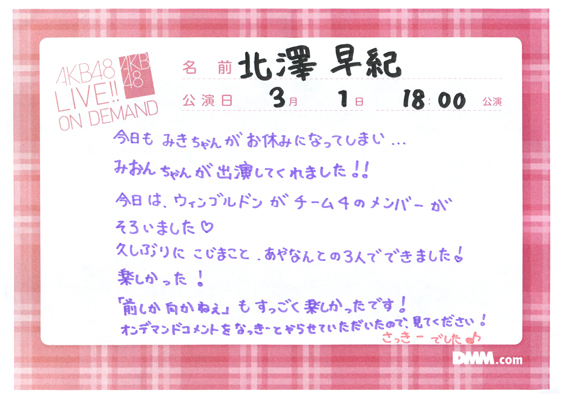 AKB48
LIVE!!
ON DEMAND
AKB
48
名前 北澤 早紀
公演日 3月 1日 18:00 公演
今日も みきちゃんが お休みになってしまい...
みおんちゃんが出演してくれました!!
今日は、ウィンゴルドン が チーム4のメンバーが
そろいました♡
久しぶりに こじまこと、あやなんとの3人でできました!
楽しかった!
「前しか向かねえ」も すっごく楽しかったです!
オンデマンドコメントをなっきーとやらせていただいたので、見てください!
さっきー でした♪
DMM.com